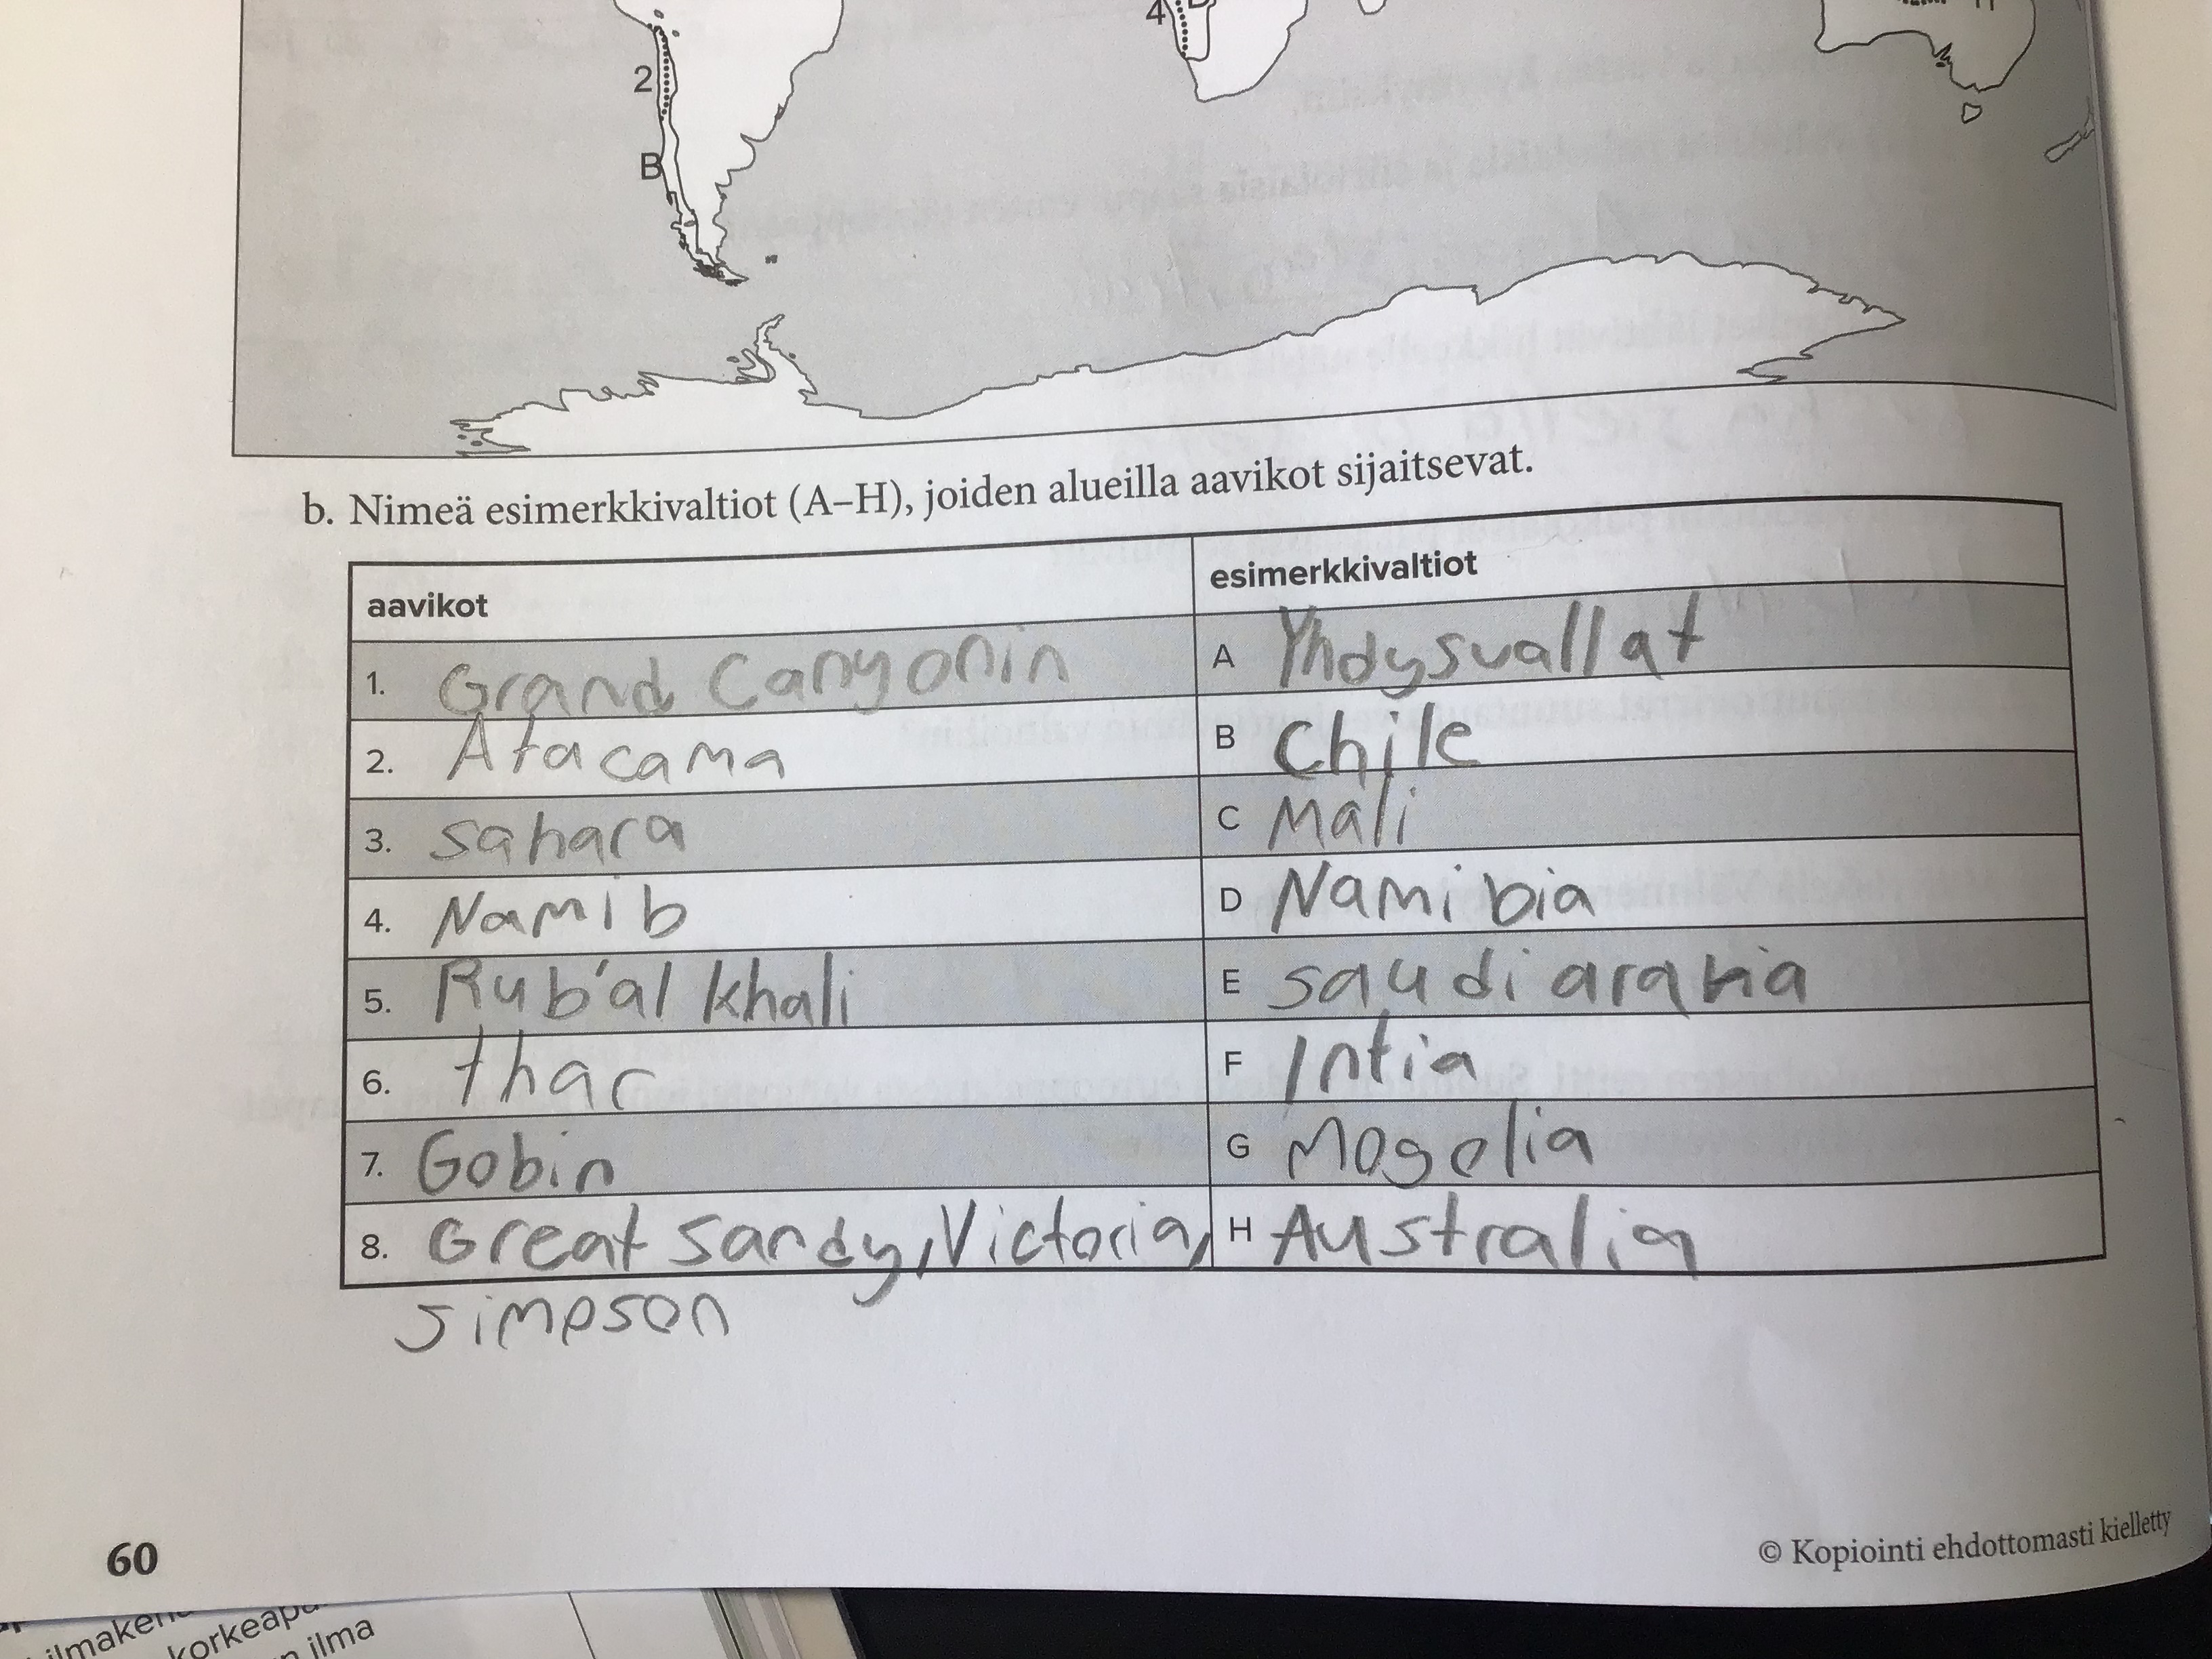 4
2
B
b. Nimeä esimerkkivaltiot (A–H), joiden alueilla aavikot sijaitsevat.
aavikot esimerkkivaltiot
1. Grand Canyonin A Yhdysvallat
2. Atacama B Chile
3. sahara C Mali
4. Namib D Namibia
5. Rub'al khali E saudi arabia
6. thar F Intia
7. Gobin G Mogolia
8. Great sandy, Victoria, H Australia
simpson
60
© Kopiointi ehdottomasti kielletty
korkeapa
ilma